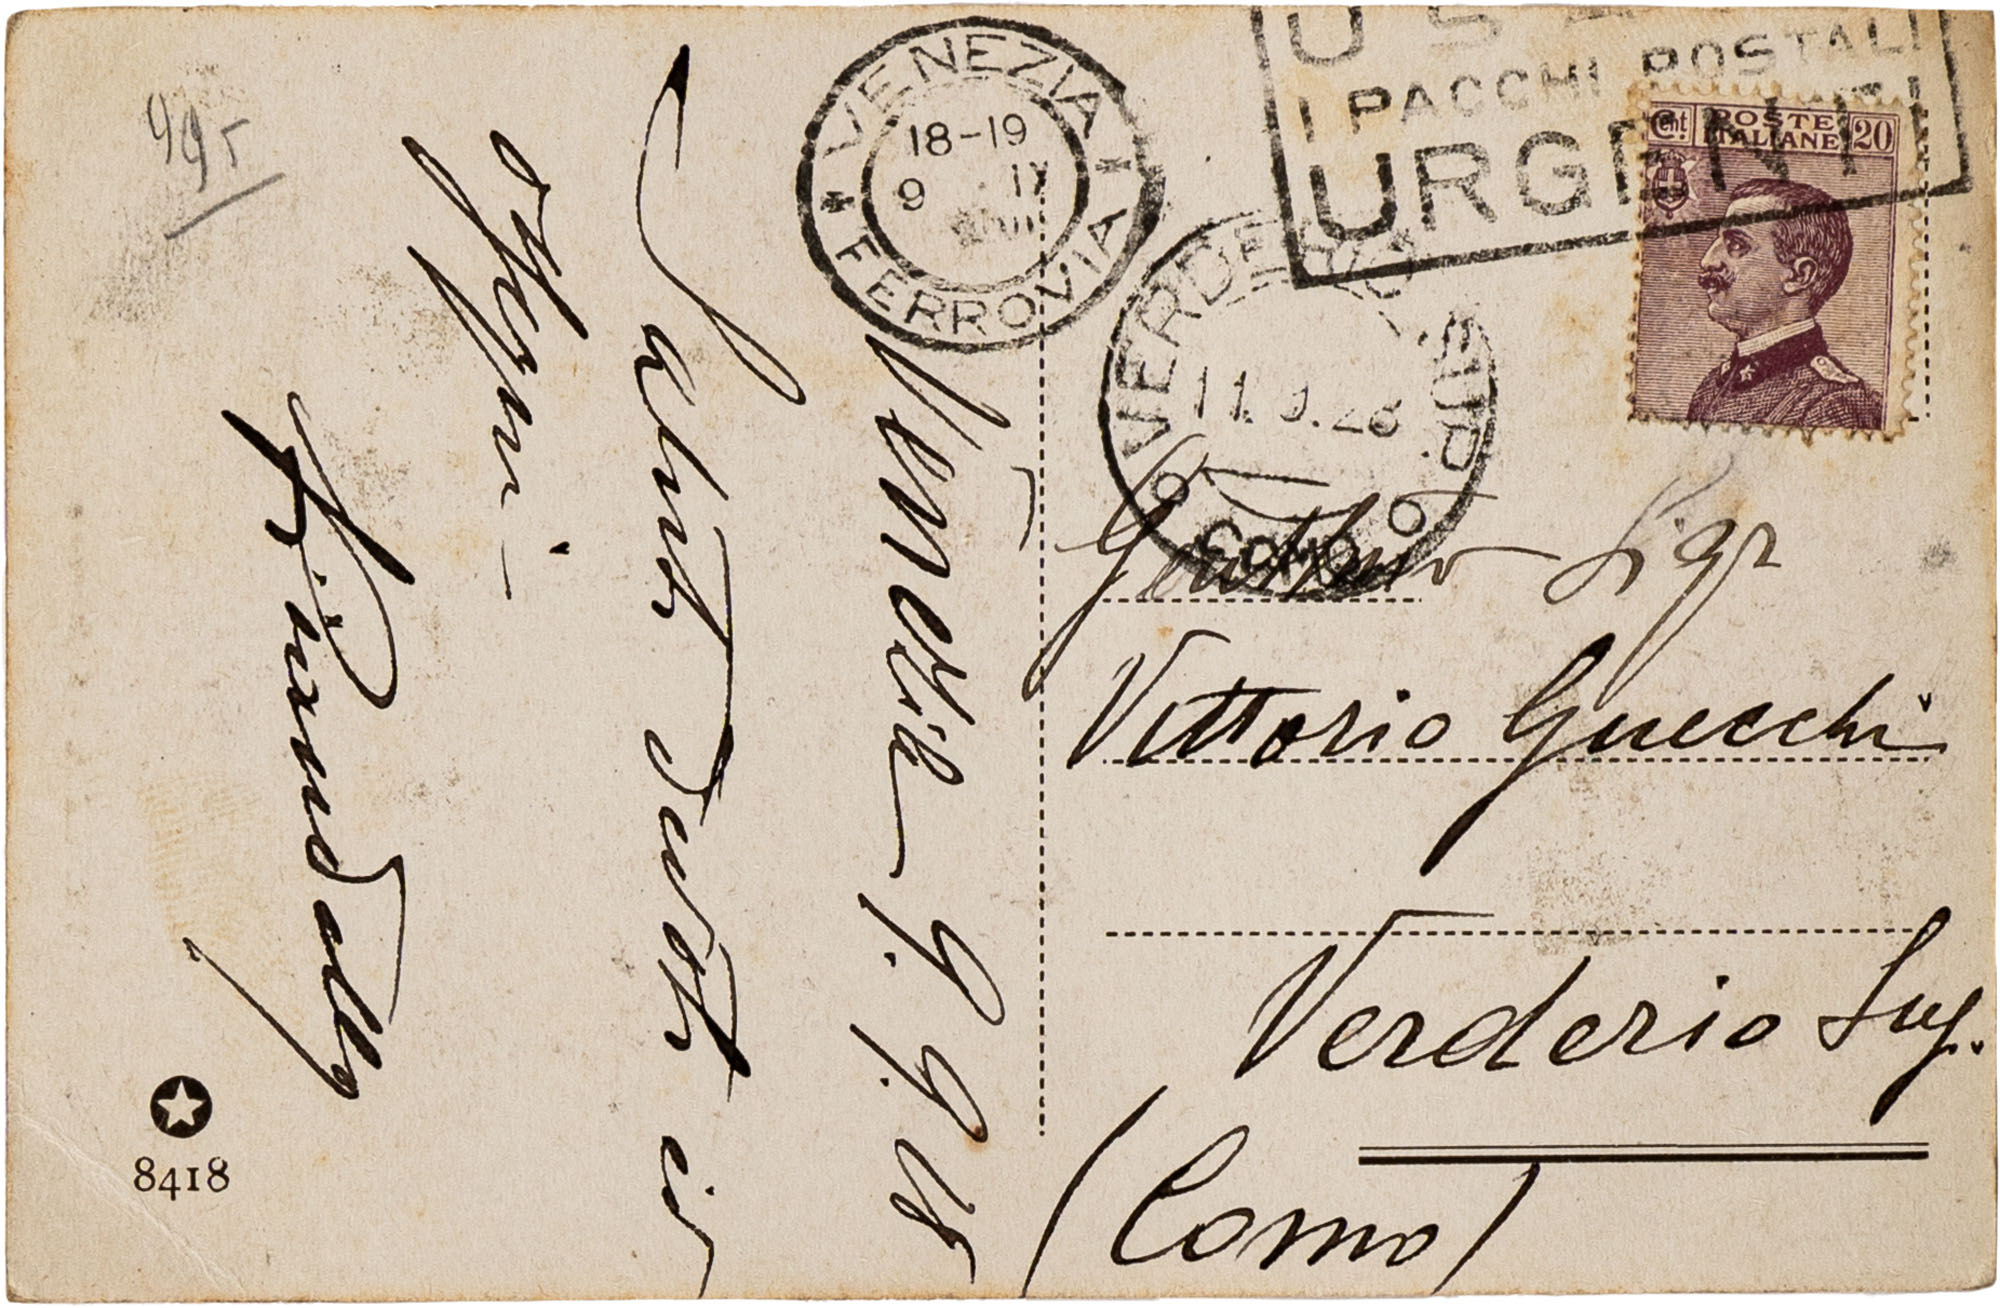 995
VENEZIA
18-19
9 IX
FERROVIA
USATE
I PACCHI POSTALI
URGENTI
Cent. POSTE ITALIANE 20
VERDERIO SUP.
11.9.28
COMO
Venezia 9.9.28
Saluti
ossequi
Gentmo Sigr
Vittorio Gnecchi
Verderio Sup.
(Como)
8418